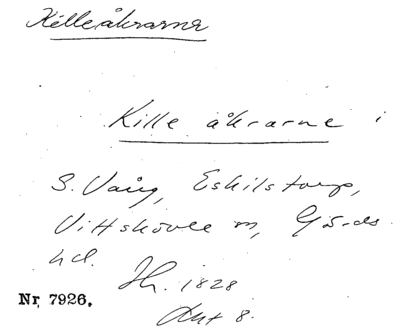 Killeåkrarna
Kille åkrarne i
S. Vång, Eskilstorp,
Vittskövle sn, Gärds
hd. Jh. 1828
Akt 8.
Nr 7926.